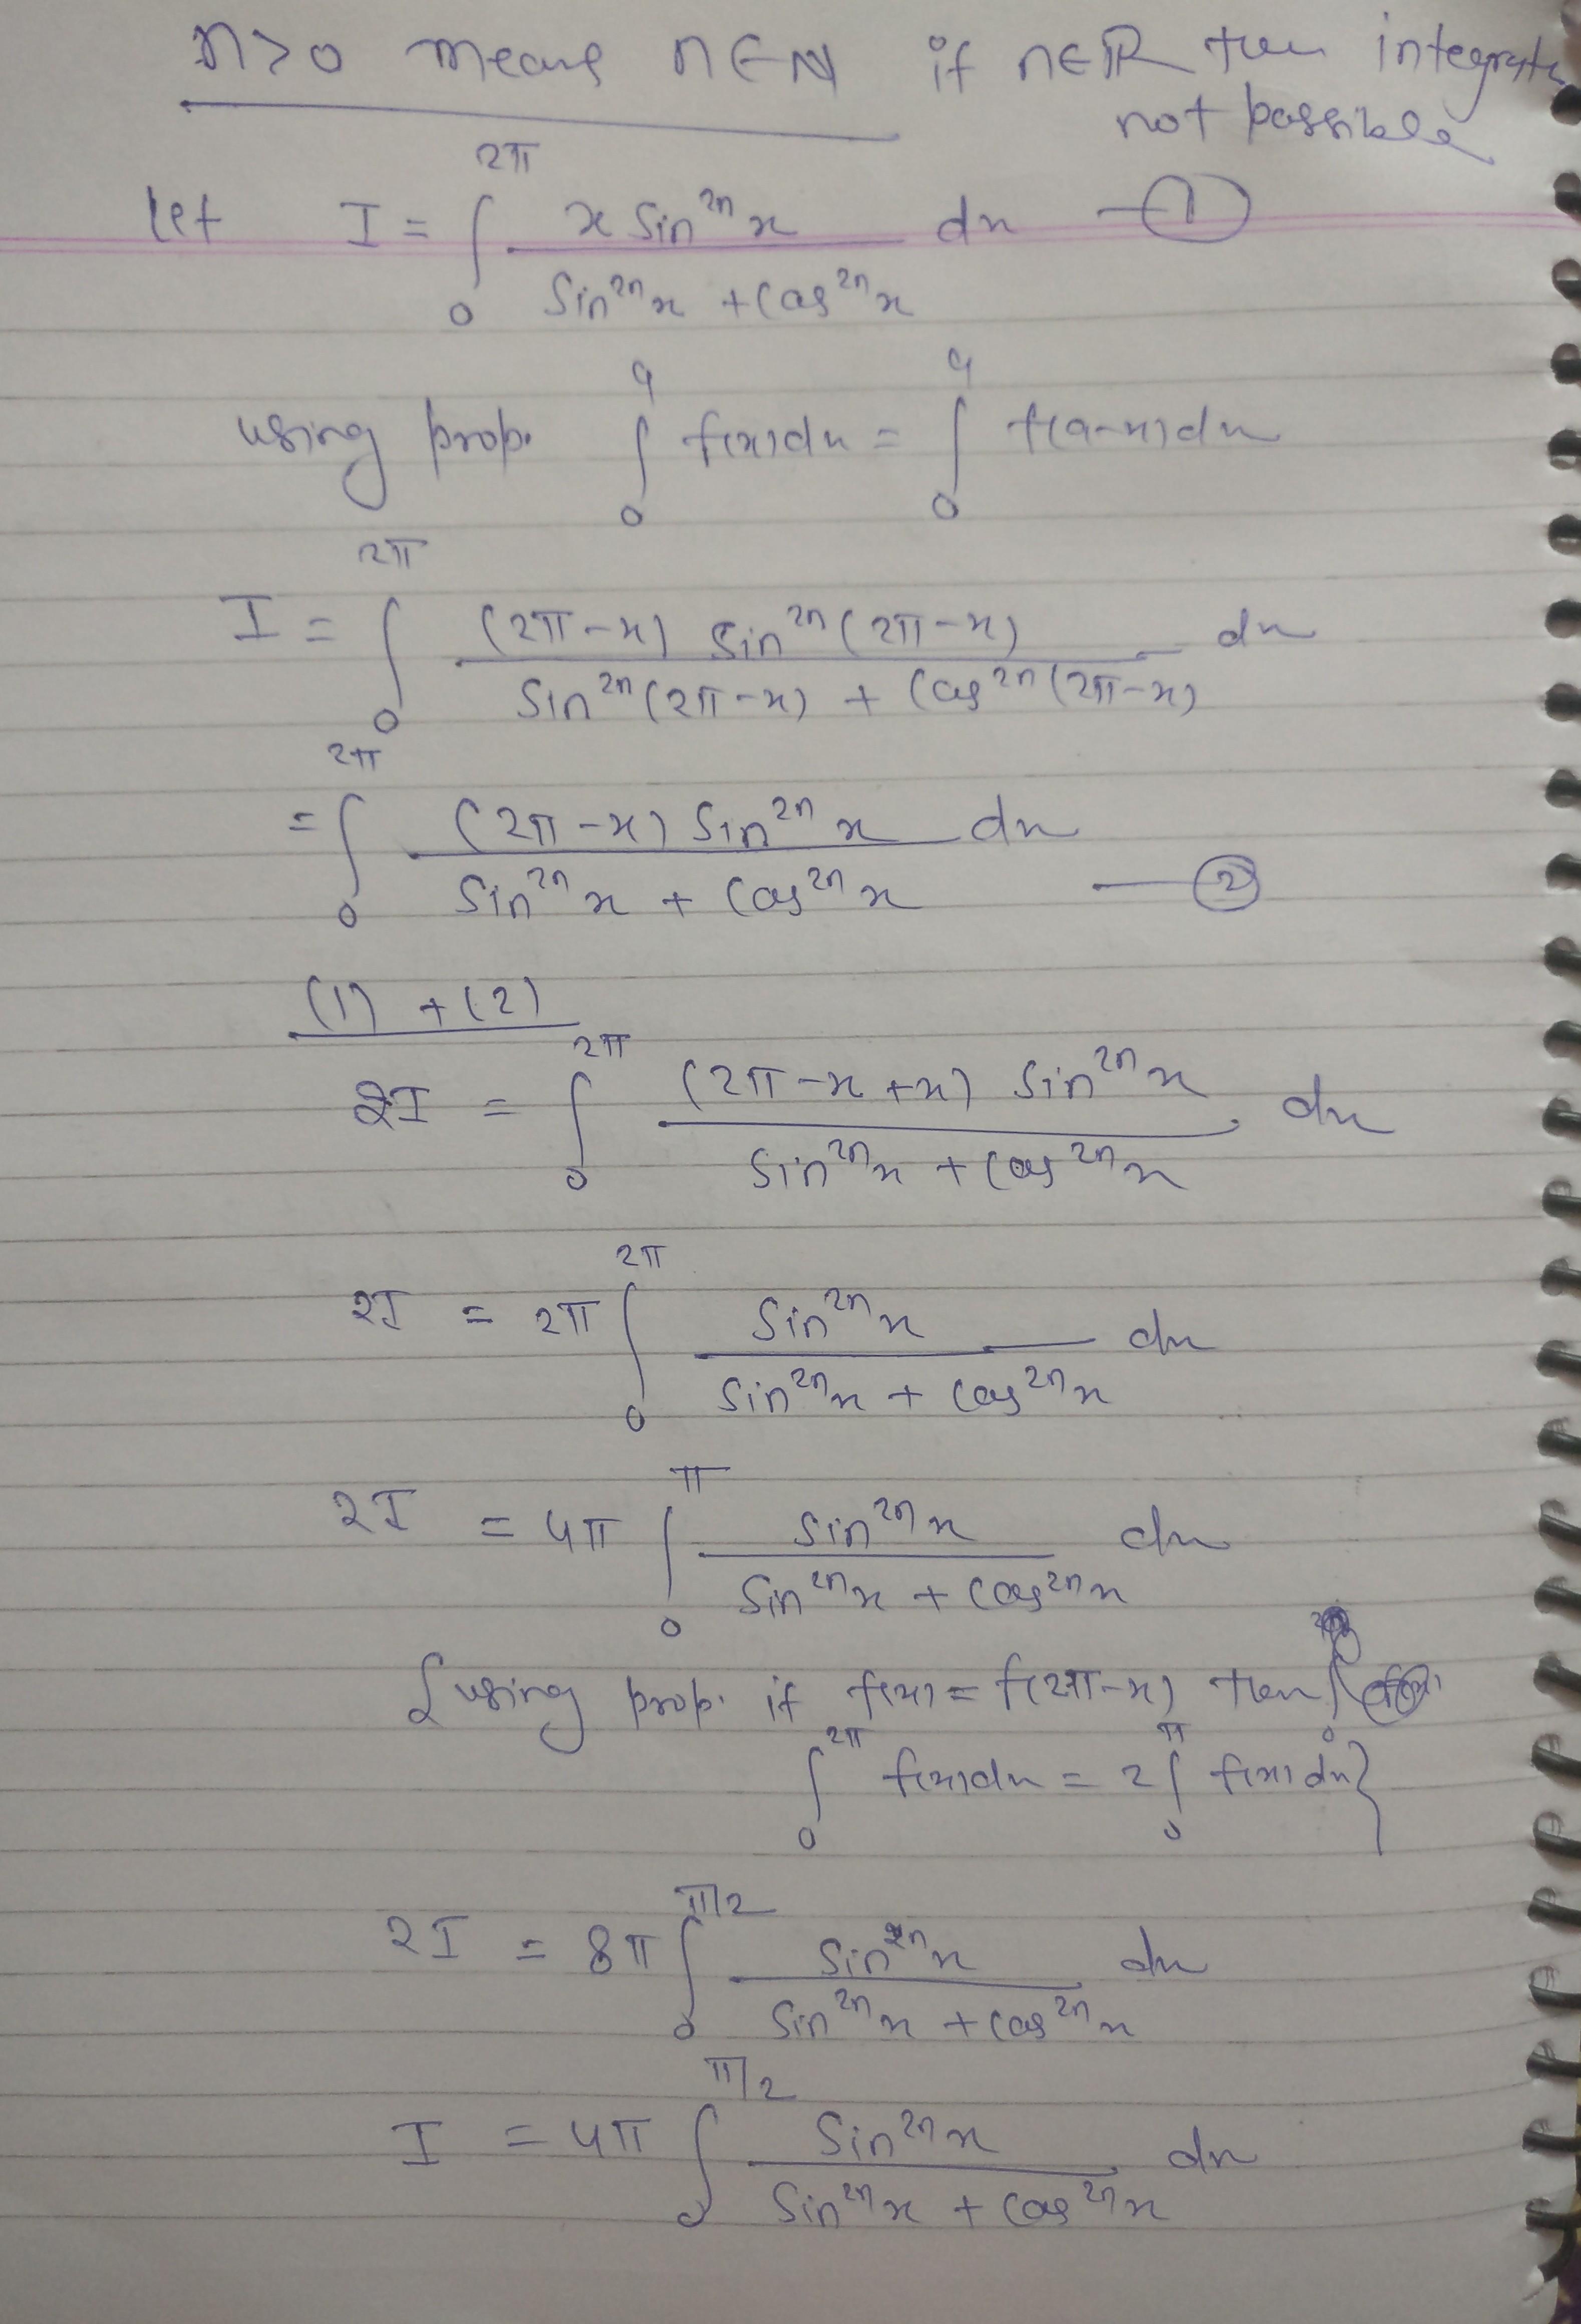 n>0 means n∈N if n∈R then integrate
not possible
Let I = ∫₀^{2π} x sin^{2n}x / (sin^{2n}x + cos^{2n}x) dx —①
using prop. ∫₀^{a} f(x)dx = ∫₀^{a} f(a-x)dx
I = ∫₀^{2π} (2π-x) sin^{2n}(2π-x) / (sin^{2n}(2π-x) + cos^{2n}(2π-x)) dx
= ∫₀^{2π} (2π-x) sin^{2n}x / (sin^{2n}x + cos^{2n}x) dx —②
(1) + (2)
2I = ∫₀^{2π} (2π-x+x) sin^{2n}x / (sin^{2n}x + cos^{2n}x) dx
2I = 2π ∫₀^{2π} sin^{2n}x / (sin^{2n}x + cos^{2n}x) dx
2I = 4π ∫₀^{π} sin^{2n}x / (sin^{2n}x + cos^{2n}x) dx
{using prop. if f(x) = f(2π-x) then
∫₀^{2π} f(x)dx = 2∫₀^{π} f(x)dx}
2I = 8π ∫₀^{π/2} sin^{2n}x / (sin^{2n}x + cos^{2n}x) dx
I = 4π ∫₀^{π/2} sin^{2n}x / (sin^{2n}x + cos^{2n}x) dx